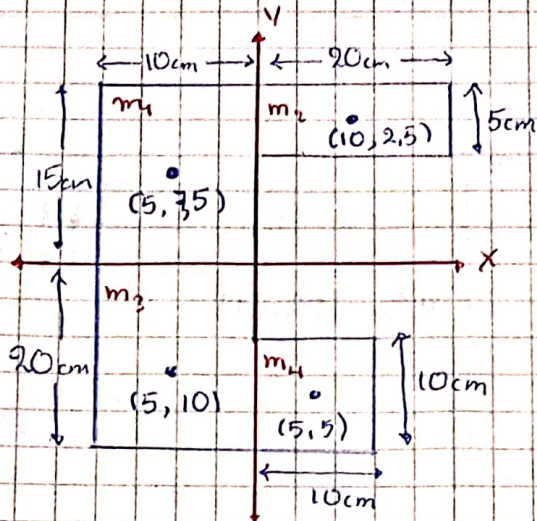 Y
10cm
20cm
m1
m2
(10, 2,5)
5cm
15cm
(5, 7,5)
X
m3
20cm
m4
10cm
(5, 10)
(5, 5)
10cm